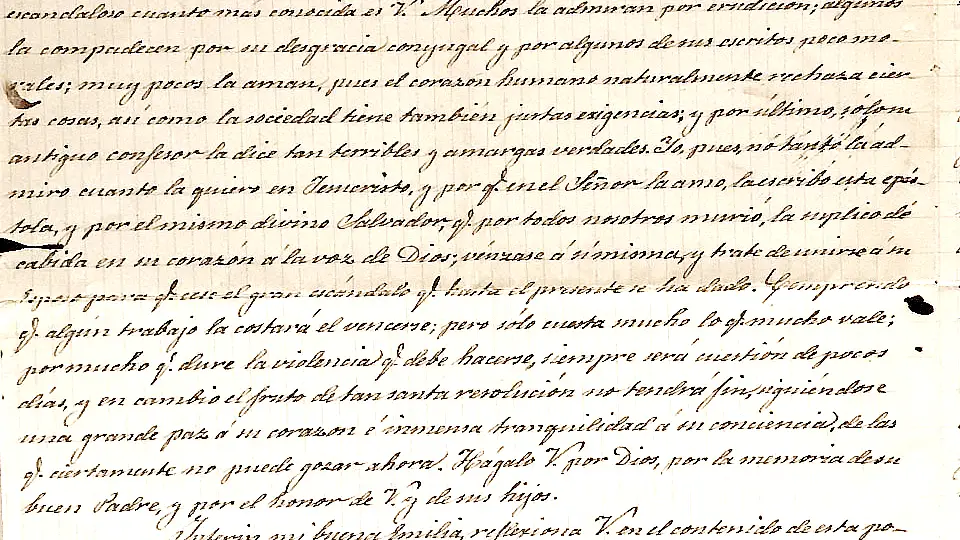 escandaloso cuanto más conocida es V. Muchos la admiran por erudición; algunos
la compadecen por su desgracia conyugal y por algunos de sus escritos poco mo-
rales; muy pocos la aman, pues el corazón humano naturalmente rechaza cier-
tas cosas, así como la sociedad tiene también justas exigencias; y por último, sólo su
antiguo confesor la dice tan terribles y amargas verdades. Yo, pues, nó tánto la ad-
miro cuanto la quiero en Jesucristo, y por q.e en el Señor la amo, la escribo esta epís-
tola, y por el mismo divino Salvador, q.e por todos nosotros murió, la suplico dé
cabida en su corazón á la voz de Dios; vénzase á sí misma, y trate de unirse á su
Esposo para q.e cese el gran escándalo q.e hasta el presente se ha dado. Comprendo
q.e algún trabajo la costará el vencerse; pero sólo cuesta mucho lo q.e mucho vale;
por mucho q.e dure la violencia q.e debe hacerse, siempre será cuestión de pocos
días, y en cambio el fruto de tan santa resolución no tendrá fin, siguiéndose
una grande paz á su corazon é inmensa tranquilidad á su conciencia, de las
q.e ciertamente no puede gozar ahora. Hágalo V. por Dios, por la memoria de su
buen Padre, y por el honor de V. y de sus hijos.
Interin mi buena Emilia, reflexiona V. en el contenido de esta po-